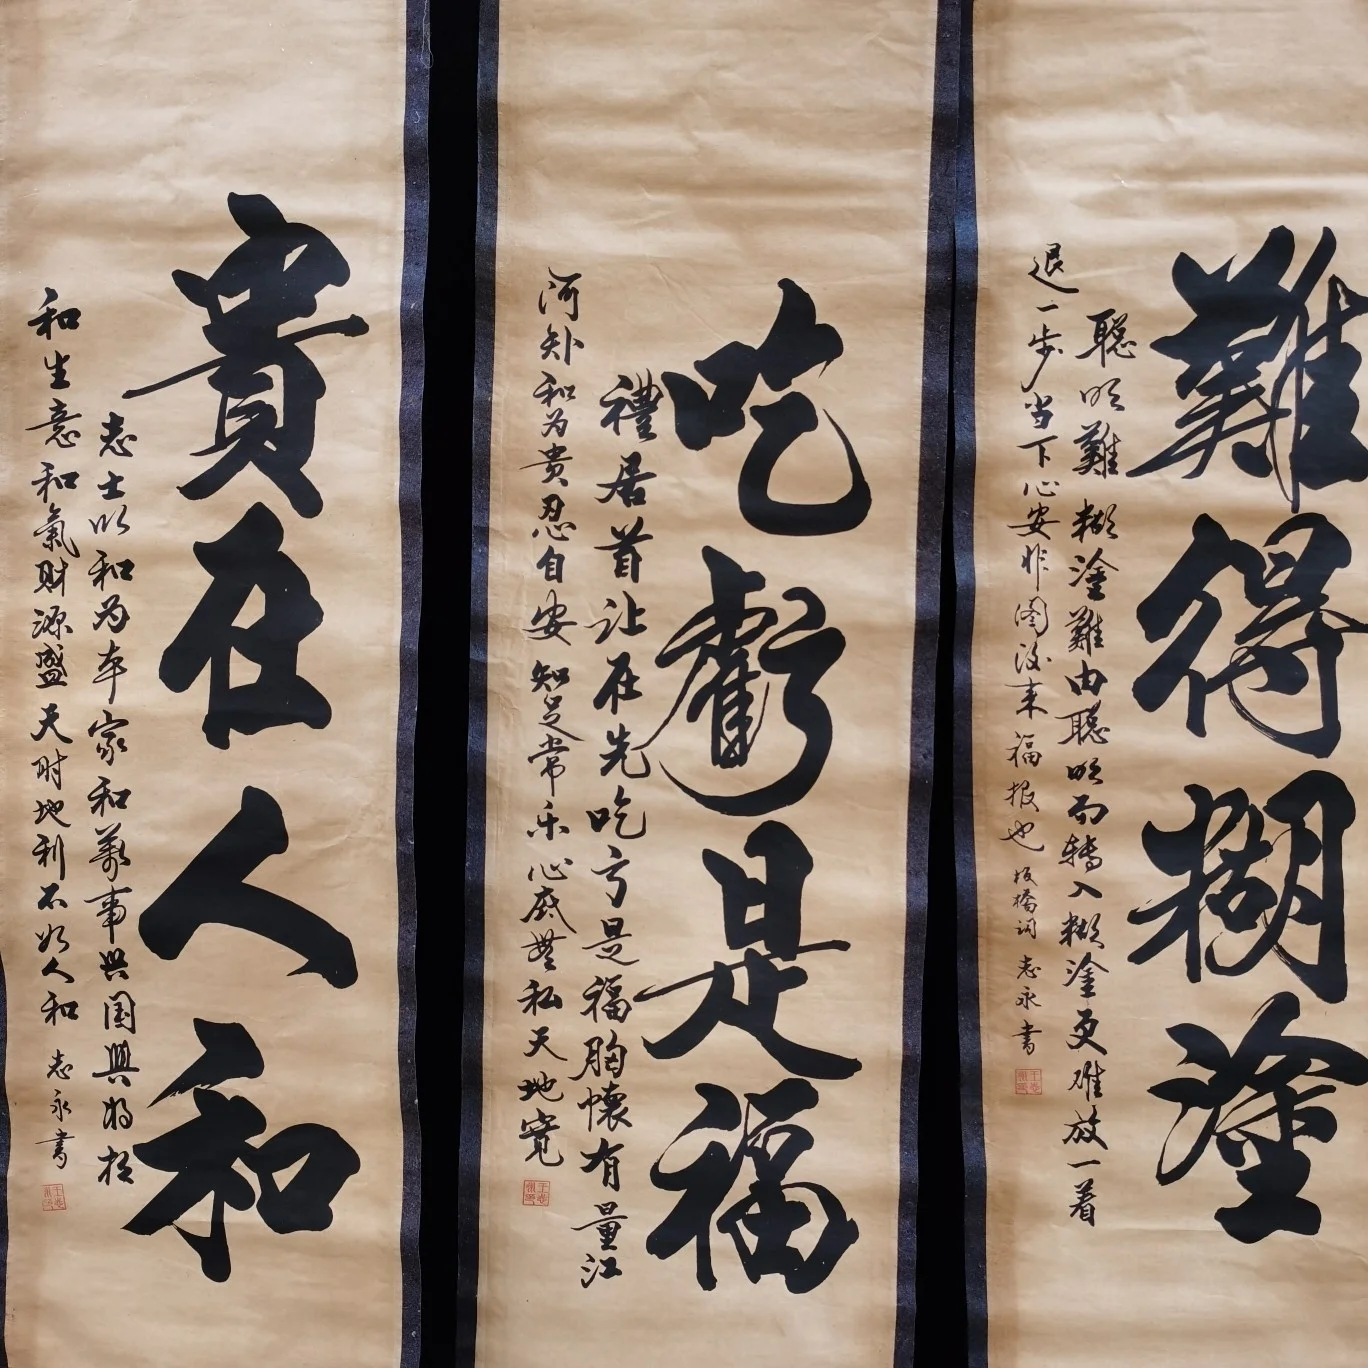 難得糊塗
聰明難糊塗難由聰明而轉入糊塗更难放一着
退一步当下心安非圖後来福报也 板橋詞 志永書
吃虧是福
禮居首让在先吃亏是福胸懷有量江
河外和为贵忍自安知足常乐心底無私天地寬
貴在人和
志士以和为本家和萬事興国興
和生意和氣財源盛天时地利不如人和 志永書